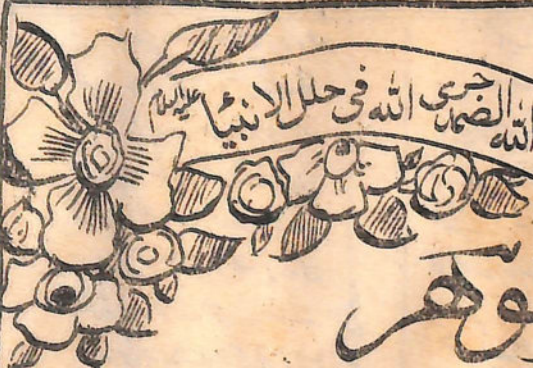 الله الصمد جری الله فی حلل الانبیا علیہ السلام
وهر